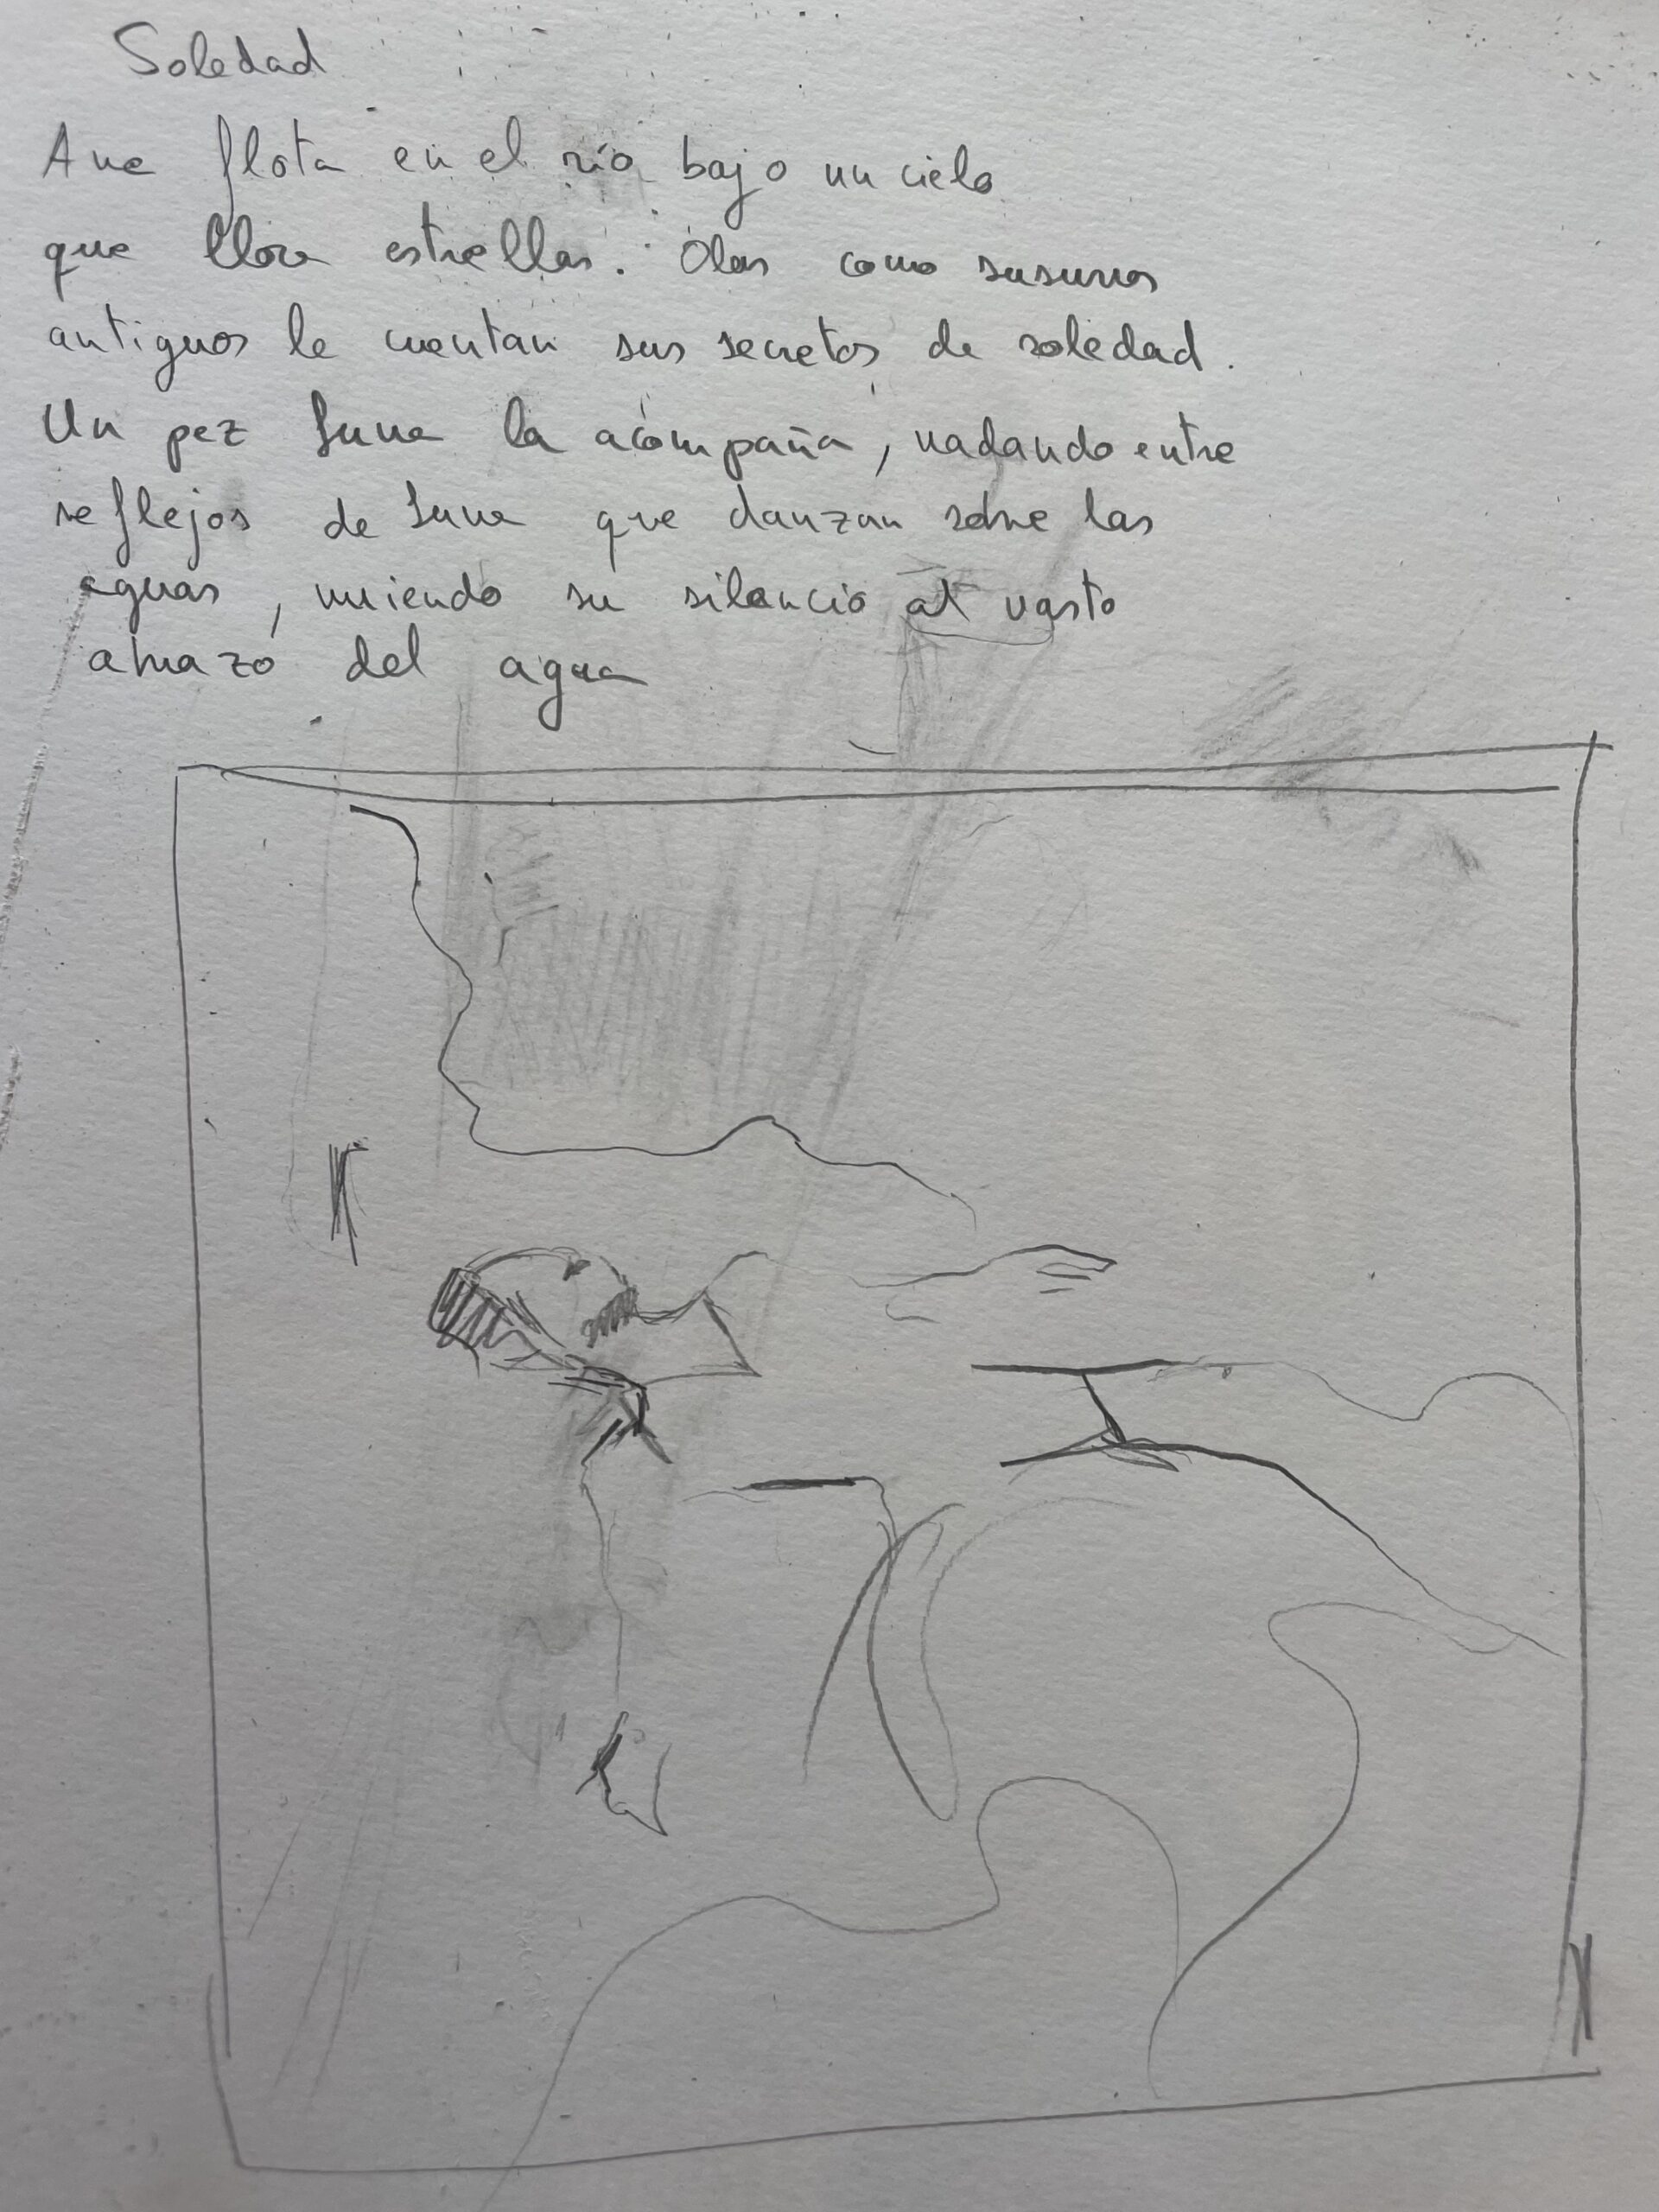 Soledad
Ana flota en el río bajo un cielo
que llora estrellas. Olas como susurros
antiguos le cuentan sus secretos de soledad.
Un pez luna la acompaña, nadando entre
reflejos de luna que danzan sobre las
aguas, uniendo su silencio al vasto
abrazo del agua